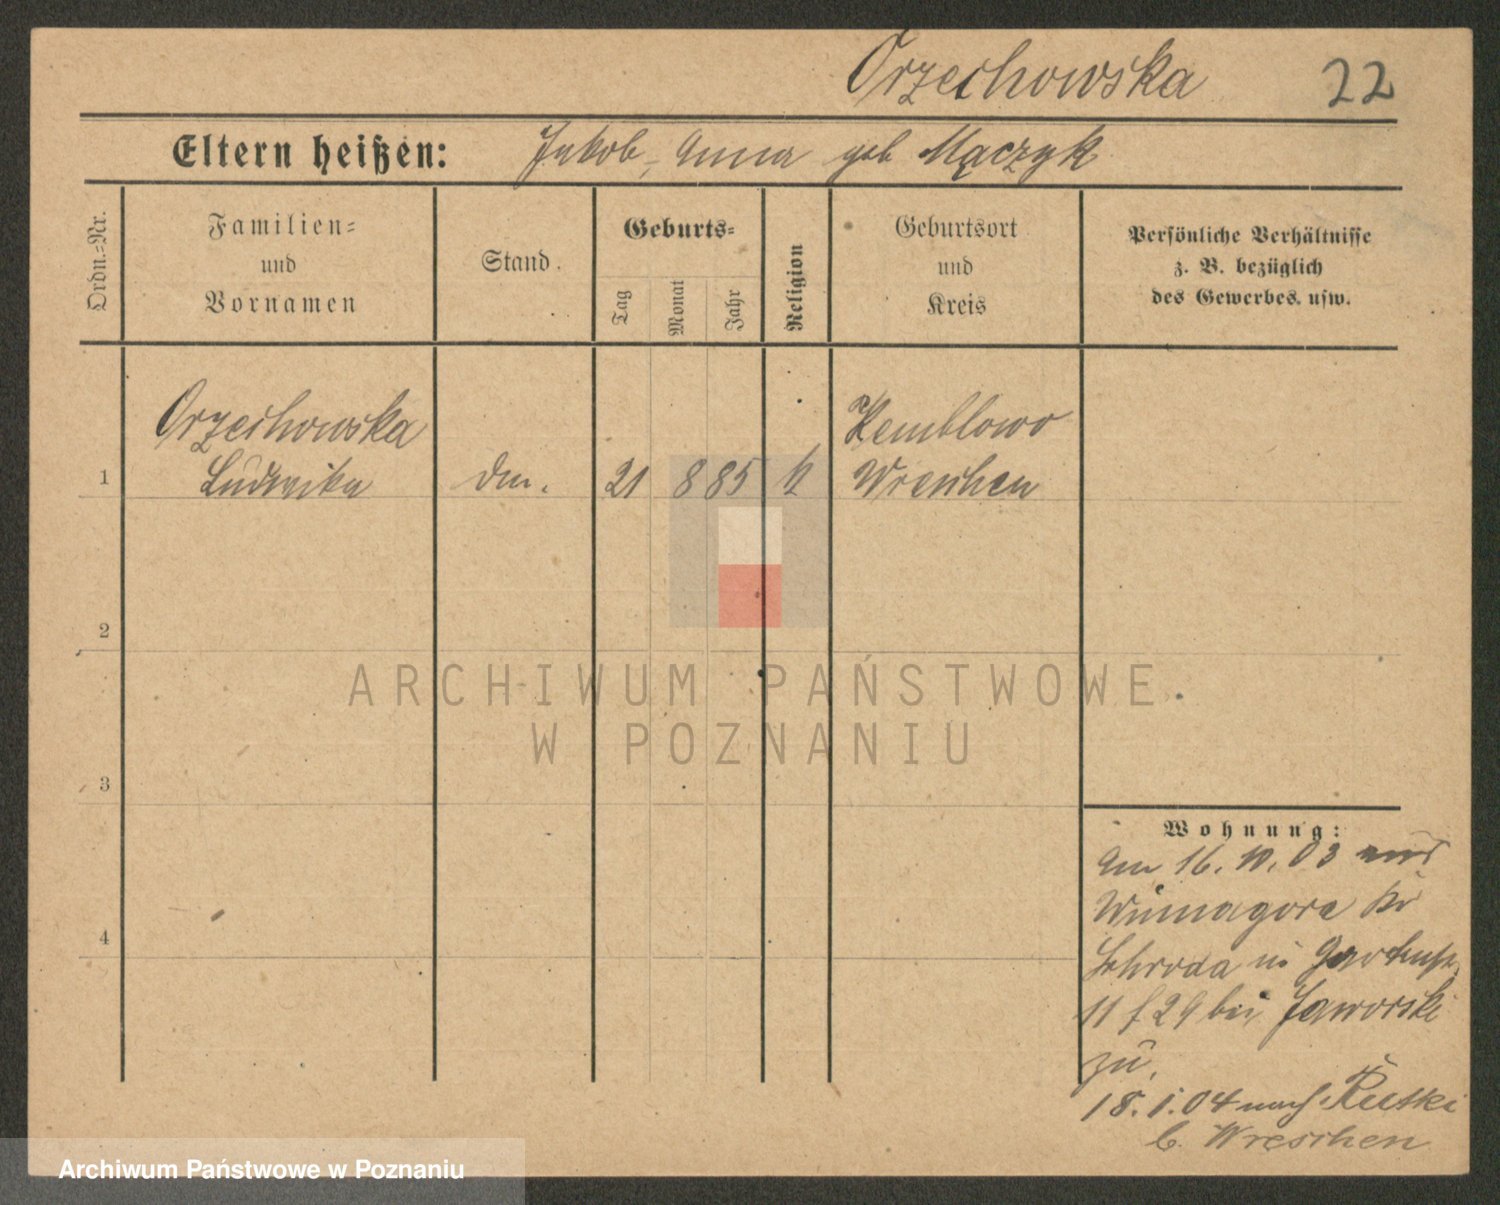 Orzechowska 22
Eltern heißen: Jakob, Anna geb Mączyk
Ordn.-Nr.
Familien-
und
Vornamen
Stand.
Geburts-
Tag
Monat
Jahr
Religion
Geburtsort
und
Kreis
Persönliche Verhältnisse
z. B. bezüglich
des Gewerbes. usw.
Orzechowska Kemblowo
1 Ludwika 21 8 85 k Wreschen
2
3
4
ARCHIWUM PAŃSTWOWE
W POZNANIU
Wohnung:
Am 16. 10. 03 aus
Winnagora Kr
Schroda in
11 f 29 bei Jaworski
zu.
18. 1. 04 nach Rutki
b. Wreschen
Archiwum Państwowe w Poznaniu